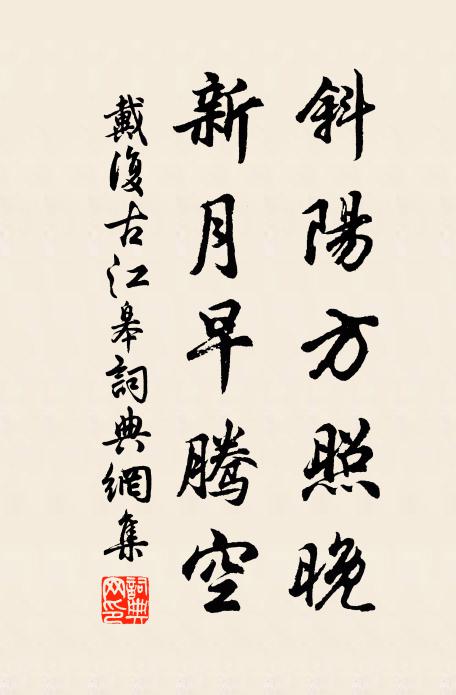 斜陽方照晚
新月早騰空
戴復古江皋詞典網集
詞典网印